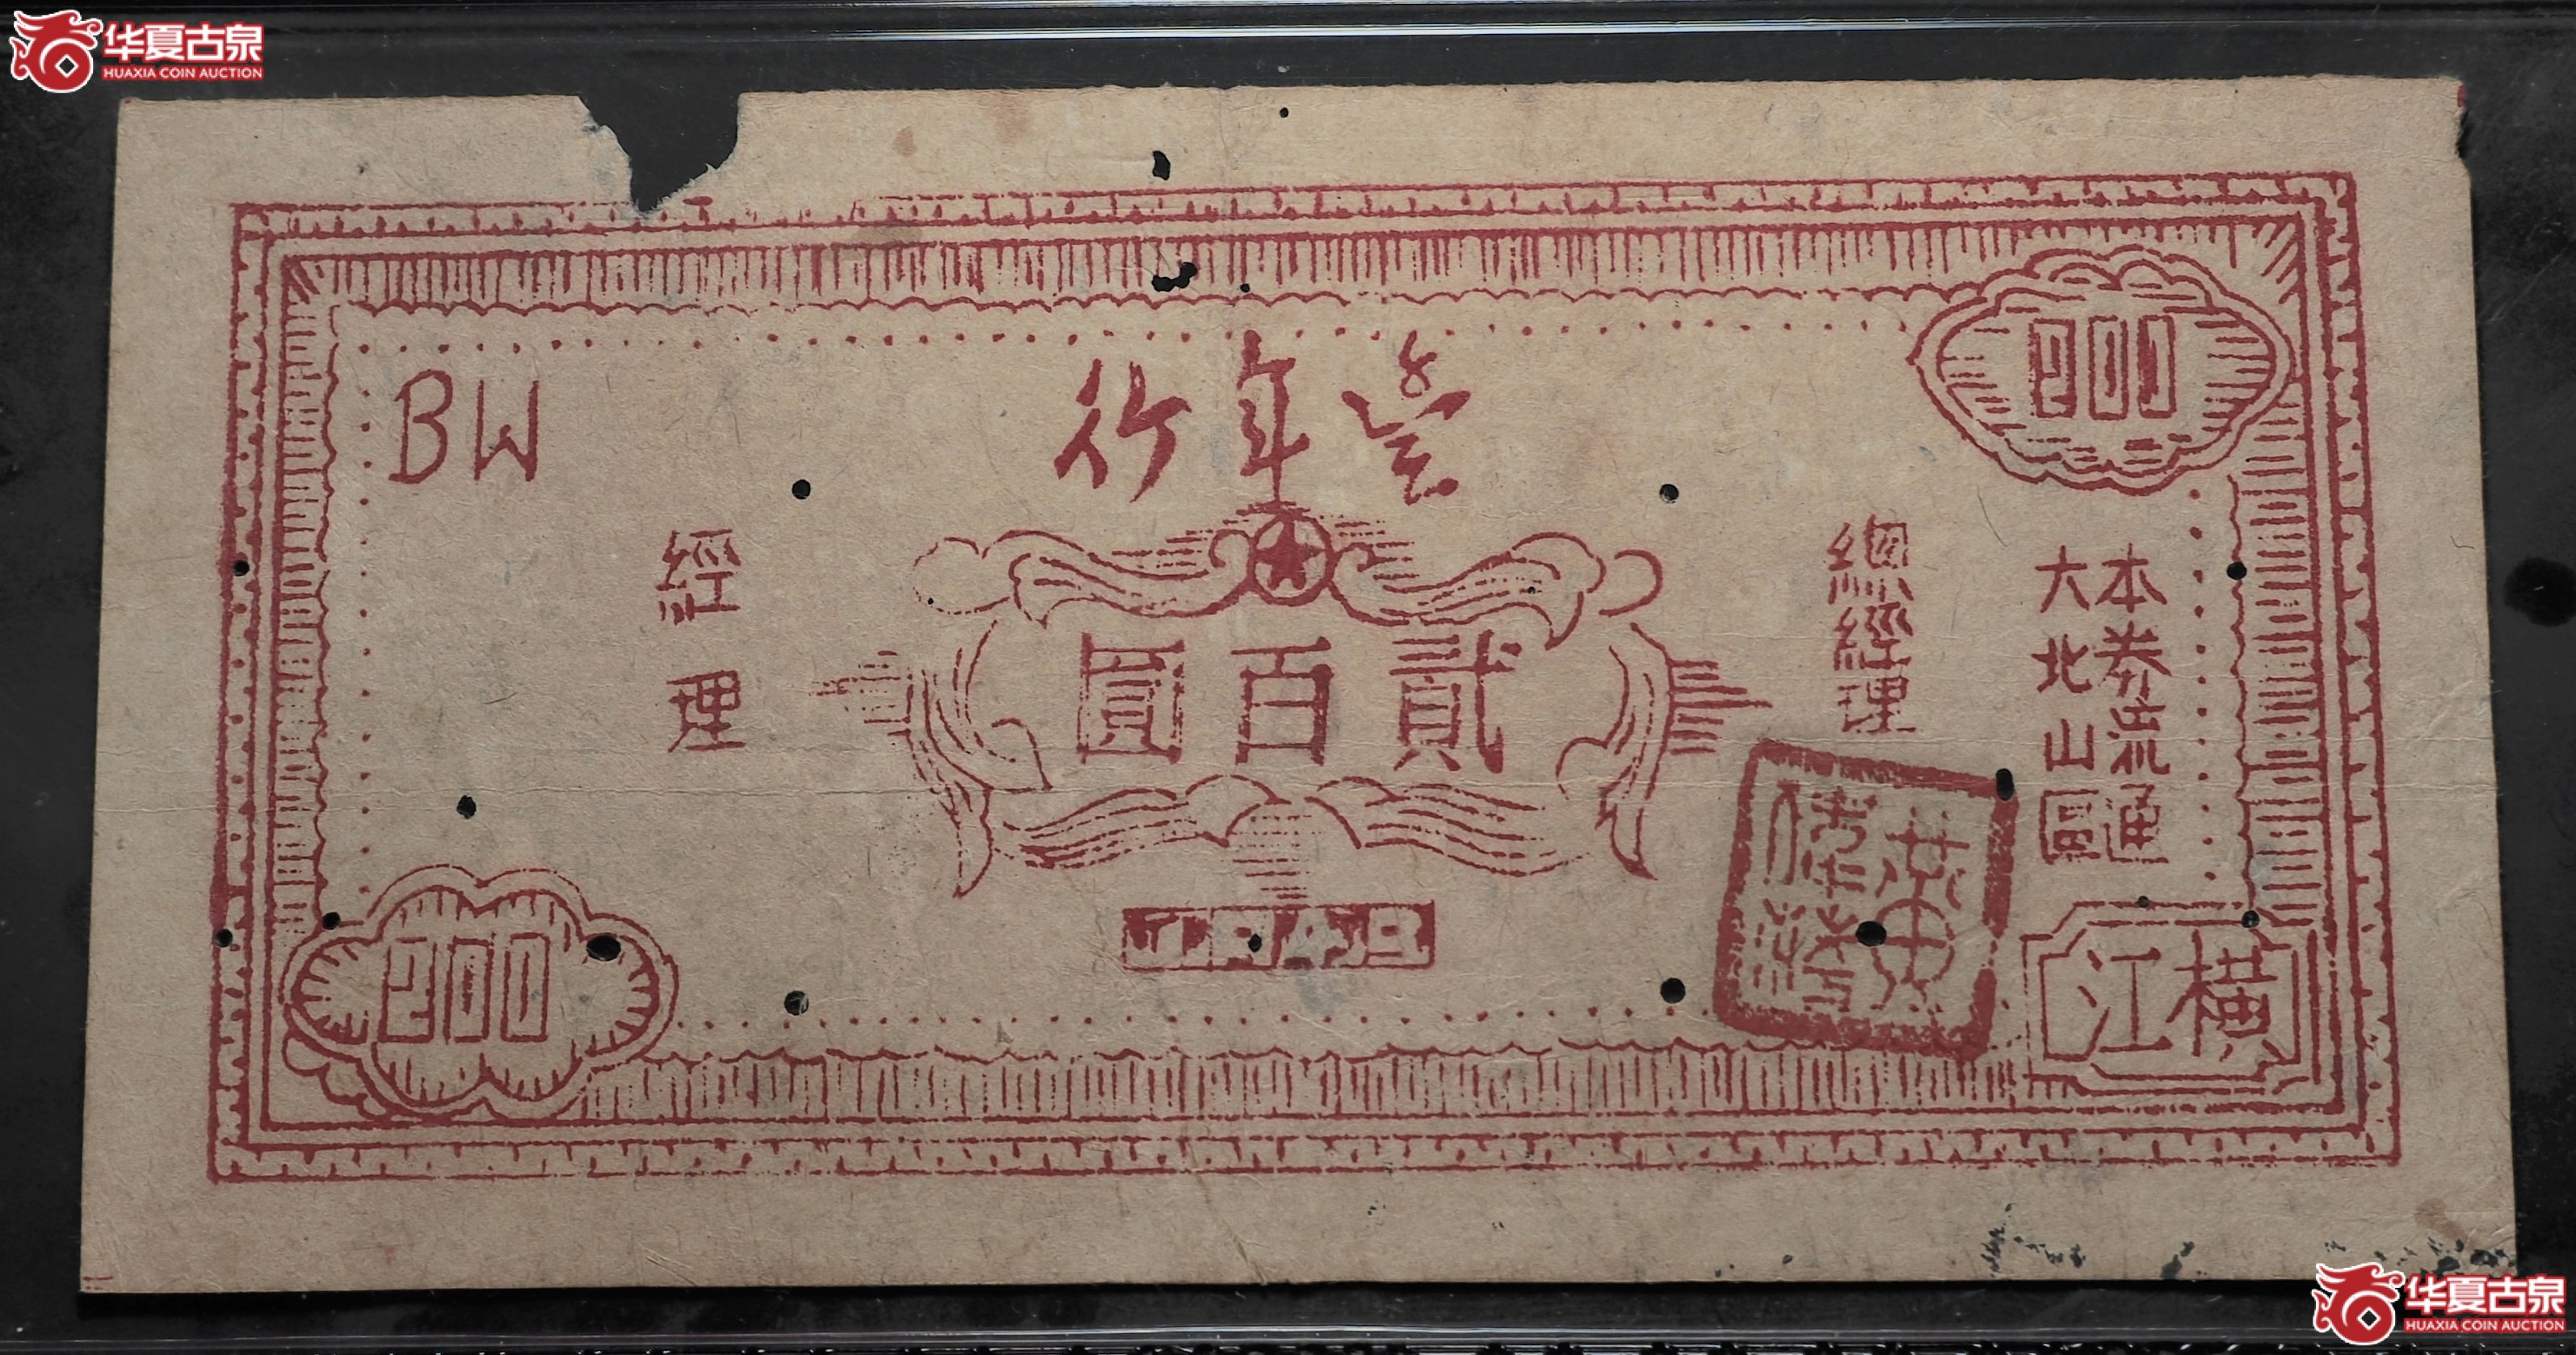 华夏古泉
HUAXIA COIN AUCTION
200
BW
總經理
經理
貳百圓
本券流通
大北山區
橫江
200
华夏古泉
HUAXIA COIN AUCTION